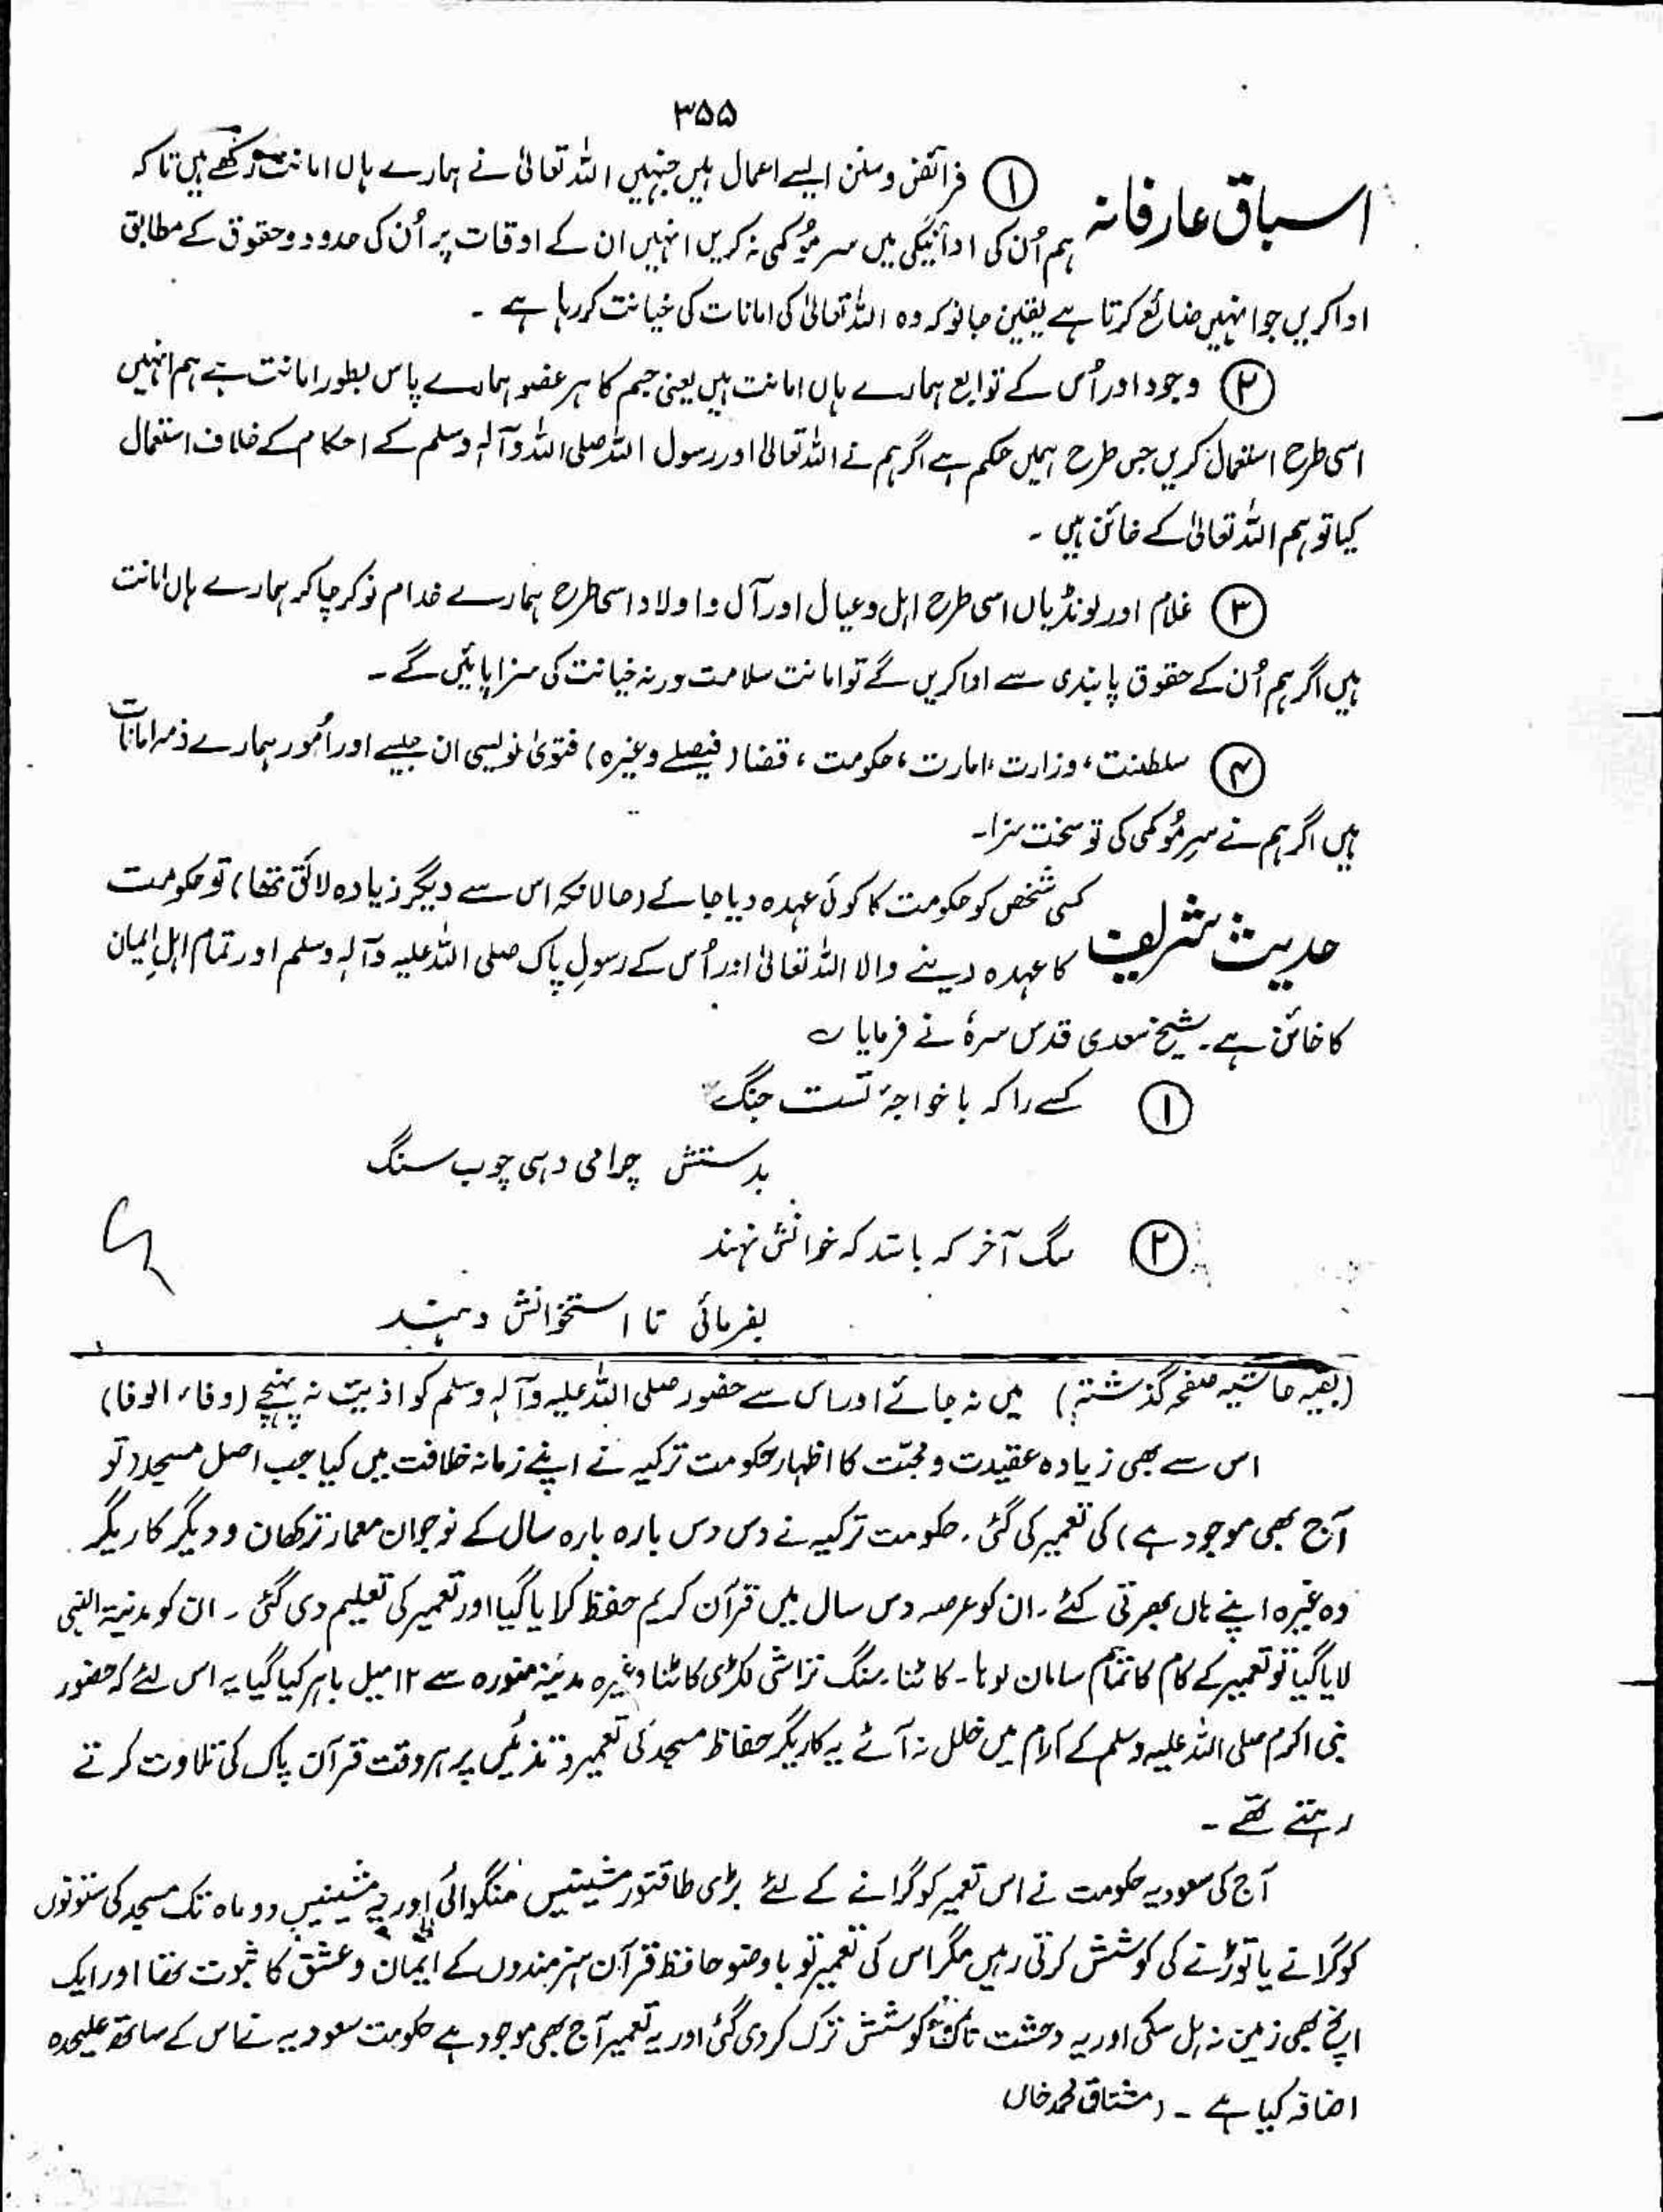 ۳۵۵
اسباق عارفانہ ① فرائض و سنن ایسے اعمال ہیں جنہیں اللہ تعالیٰ نے ہمارے ہاں امانت رکھے ہیں تاکہ
ہم اُن کی ادائیگی میں سرمُو کمی نہ کریں انہیں ان کے اوقات پر اُن کی حدود و حقوق کے مطابق
ادا کریں جو انہیں ضائع کرتا ہے یقین جانو کہ وہ اللہ تعالیٰ کی امانات کی خیانت کر رہا ہے ۔
② وجود اور اُس کے توابع ہمارے ہاں امانت ہیں یعنی جسم کا ہر عضو ہمارے پاس بطور امانت ہے ہم انہیں
اسی طرح استعمال کریں جس طرح ہمیں حکم ہے اگر ہم نے اللہ تعالیٰ اور رسول اللہ صلی اللہ وآلہٖ وسلم کے احکام کے خلاف استعمال
کیا تو ہم اللہ تعالیٰ کے خائن ہیں ۔
③ غلام اور لونڈیاں اسی طرح اہل و عیال اور آل و اولاد اسی طرح ہمارے خدام نوکر چاکر ہمارے ہاں امانت
ہیں اگر ہم اُن کے حقوق پابندی سے ادا کریں گے تو امانت سلامت ورنہ خیانت کی سزا پائیں گے ۔
④ سلطنت ، وزارت ، امارت ، حکومت ، قضا (فیصلے وغیرہ) فتویٰ نویسی ان جیسے اور اُمور ہمارے ذمہ امانات
ہیں اگر ہم نے سرِمُو کمی کی تو سخت سزا ۔
حدیث شریف کسی شخص کو حکومت کا کوئی عہدہ دیا جائے (حالانکہ اس سے دیگر زیادہ لائق تھا) تو حکومت
کا عہدہ دینے والا اللہ تعالیٰ اور اُس کے رسولِ پاک صلی اللہ علیہ وآلہٖ وسلم اور تمام اہلِ ایمان
کا خائن ہے ۔ شیخ سعدی قدس سرہٗ نے فرمایا ؎
① کسے را کہ با خواجۂ تست جنگ
بدستش چرا می دہی چوب سنگ
② سگ آخر کہ باشد کہ خوانش نہند
بفرمائی تا استخوانش دہند
(بقیہ حاشیہ صفحہ گذشتہ) میں نہ جائے اور اس سے حضور صلی اللہ علیہ وآلہٖ وسلم کو اذیت نہ پہنچے (وفاء الوفا)
اس سے بھی زیادہ عقیدت و محبت کا اظہار حکومت ترکیہ نے اپنے زمانہ خلافت میں کیا جب اصل مسجد (تو
آج بھی موجود ہے) کی تعمیر کی گئی . حکومت ترکیہ نے دس دس بارہ بارہ سال کے نوجوان معمار ترکھان و دیگر کاریگر
وہ غیرہ اپنے ہاں بھرتی کئے ۔ ان کو عرصہ دس سال میں قرآن کریم حفظ کرایا گیا اور تعمیر کی تعلیم دی گئی ۔ ان کو مدینۃ النبی
لایا گیا تو تعمیر کے کام کا تمام سامان لوہا ۔ کاٹنا ۔ سنگ تراشی لکڑی کاٹنا وغیرہ مدینہ منورہ سے ۱۲ میل باہر کیا گیا یہ اس لئے کہ حضور
نبی اکرم صلی اللہ علیہ وسلم کے آرام میں خلل نہ آئے یہ کاریگر حفاظ مسجد کی تعمیر و تذئیں پر ہر وقت قرآن پاک کی تلاوت کرتے
رہتے تھے ۔
آج کی سعودیہ حکومت نے اس تعمیر کو گرانے کے لئے بڑی طاقتور مشینیں منگوائی اور یہ مشینیں دو ماہ تک مسجد کی ستونوں
کو گرانے یا توڑنے کی کوشش کرتی رہیں مگر اس کی تعمیر تو باوضو حافظ قرآن ہنرمندوں کے ایمان و عشق کا ثبوت تھا اور ایک
انچ بھی زمین نہ ہل سکی اور یہ دہشت ناک کوشش ترک کر دی گئی اور یہ تعمیر آج بھی موجود ہے حکومت سعودیہ نے اس کے ساتھ علیحدہ
اضافہ کیا ہے ۔ (مشتاق محمد خاں